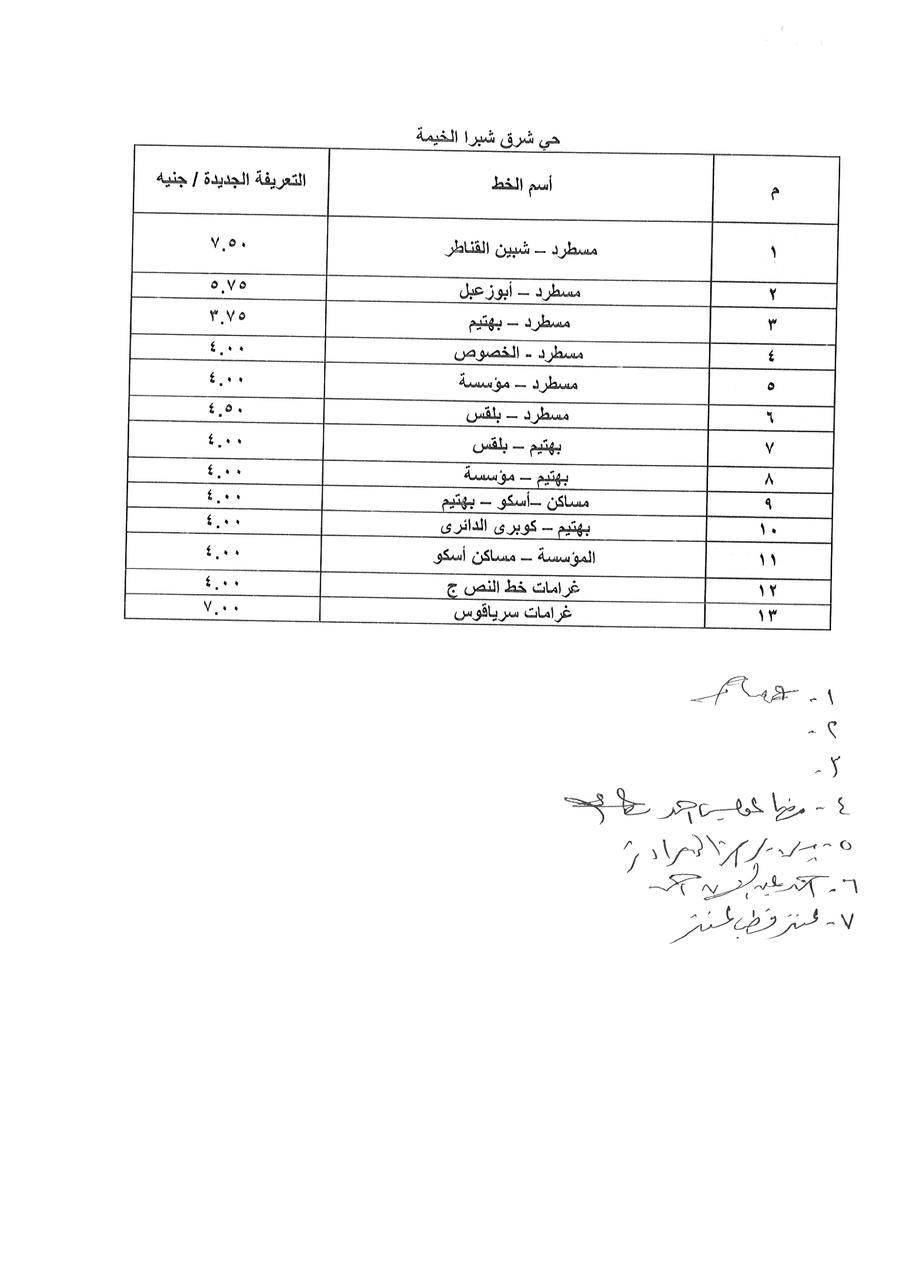 حي شرق شبرا الخيمة
م أسم الخط التعريفة الجديدة / جنيه
١ مسطرد – شبين القناطر ٧.٥٠
٢ مسطرد – أبوزعبل ٥.٧٥
٣ مسطرد – بهتيم ٣.٧٥
٤ مسطرد - الخصوص ٤.٠٠
٥ مسطرد – مؤسسة ٤.٠٠
٦ مسطرد – بلقس ٤.٥٠
٧ بهتيم – بلقس ٤.٠٠
٨ بهتيم – مؤسسة ٤.٠٠
٩ مساكن –أسكو – بهتيم ٤.٠٠
١٠ بهتيم – كوبرى الدائرى ٤.٠٠
١١ المؤسسة – مساكن أسكو ٤.٠٠
١٢ غرامات خط النص ج ٤.٠٠
١٣ غرامات سرياقوس ٧.٠٠
١-
٢-
٣-
٤-
٥-
٦- احمد
٧- عنتر قطب عنتر